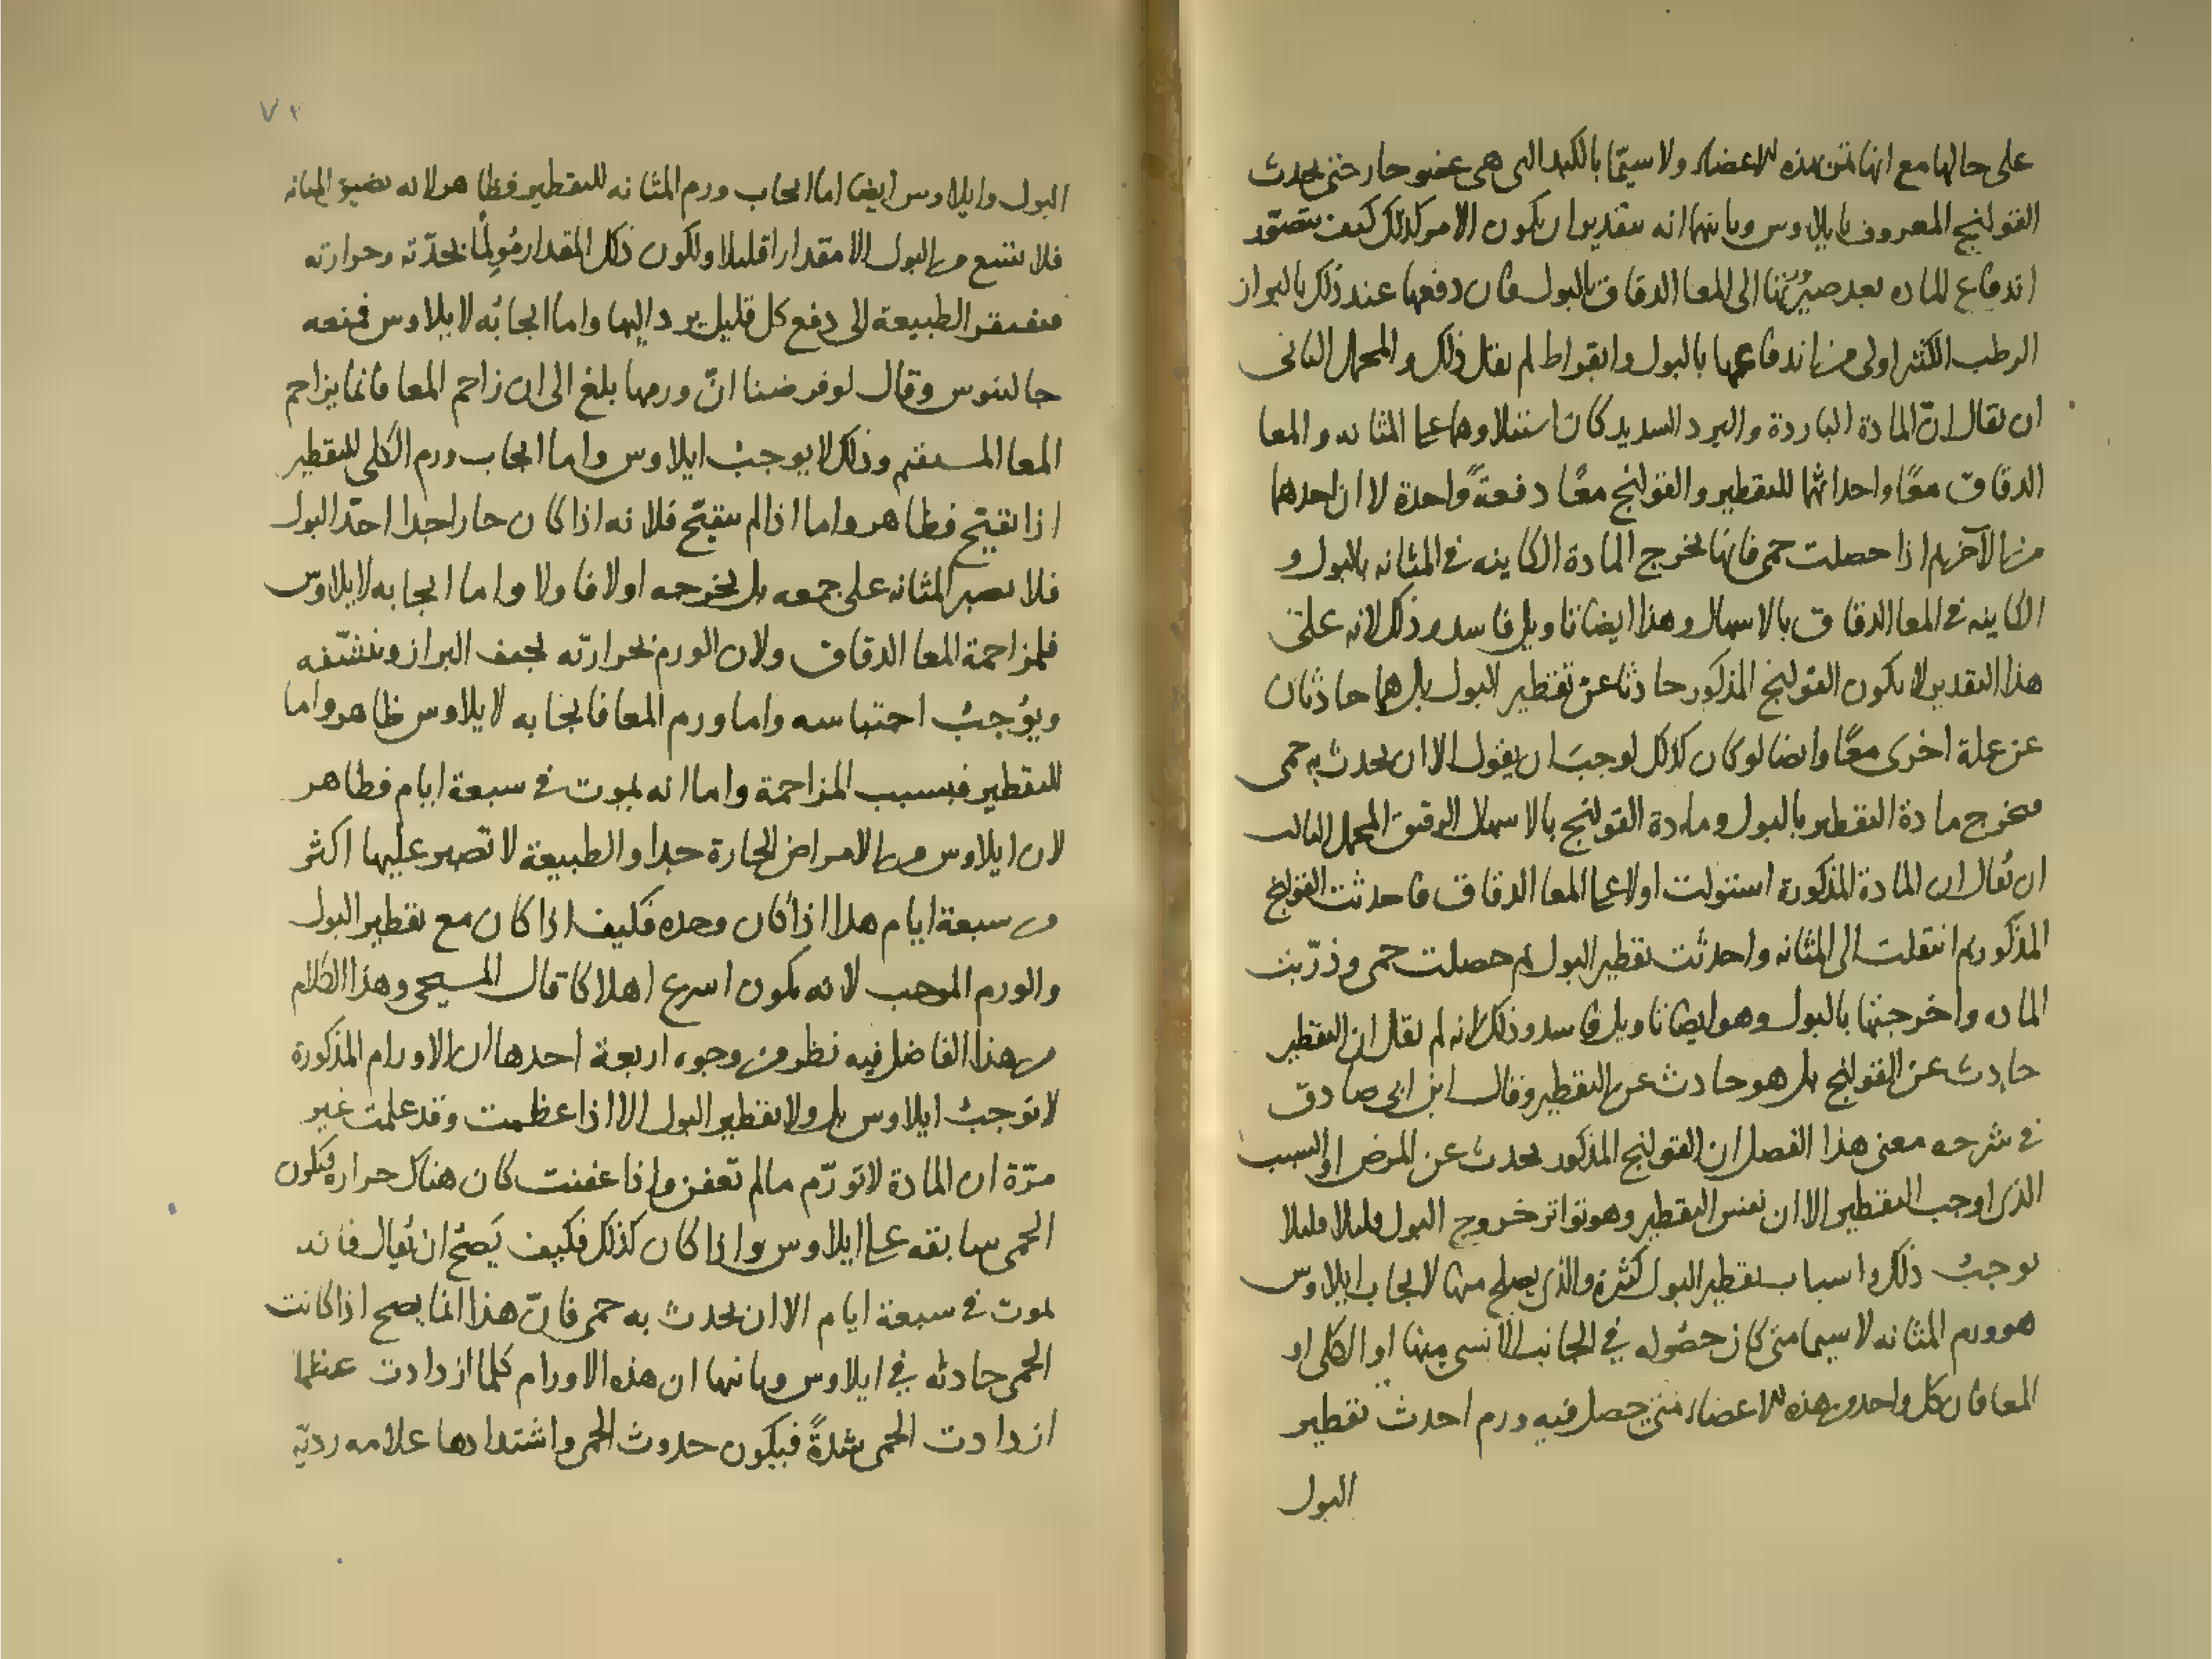 على حالها مع انها تمر بهذه الاعضاء ولا سيّما بالكبد التى هى عضو حار حتى يحدث
القولنج المعروف بايلاوس وثانيها انه بتقدير ان يكون الامر كذلك كيف يتصوّر
اندفاع المادة بعد صيرورتها الى المعا الدقاق بالبول فان دفعها عند ذلك بالبراز
الرطب الكثير اولى من اندفاعها بالبول وابقراط لم يقل ذلك والمحمل الثانى
ان يقال انّ المادة الباردة والبرد الشديد كان استيلاوهما على المثانه والمعا
الدقاق معًا واحداثها للتقطير والقولنج معًا دفعةً واحدة لا ان احدهما
من الآخر ثم اذا حصلت حمى فانها تخرج المادة الكاينه فى المثانه بالبول و
الكاينه فى المعا الدقاق بالاسهال وهذا ايضا تاويل فاسد وذلك لانه على
هذا التقدير لا يكون القولنج المذكور حادثا عن تقطير البول بل هما حادثان
عن علة اخرى معًا وايضا لو كان كذلك لوجبَ ان يقول الا ان يحدث به حمى
فيخرج مادة التقطير بالبول ومادة القولنج بالاسهال الرقيق المحمل الثالث
ان يُقال ان المادة المذكورة استولت اولا على المعا الدقاق فاحدثت القولنج
المذكور ثم انتقلت الى المثانه واحدثت تقطير البول ثم حصلت حمى وذوّبت
الماده واخرجتها بالبول وهو ايضا تاويل فاسد وذلك لانه لم يقل ان التقطير
حادث عن القولنج بل هو حادث عن التقطير وقال ابن ابى صادق
فى شرحه معنى هذا الفصل ان القولنج المذكور يحدث عن المرض او السبب
الذى اوجب التقطير الا ان نفس التقطير وهو تواتر خروج البول قليلا قليلا
يوجبُ ذلك واسباب تقطير البول كثيرة والذى يصلح منها لايجاب ايلاوس
هو ورم المثانه لا سيما متى كان حصُوله فى الجانب الانسى منها او الكلى او
المعا فان كل واحد من هذه الاعضاء متى حصل فيه ورم احدث تقطير
البول
٧٢
البول وايلاوس ايضا اما ايجاب ورم المثانه للتقطير فظاهر لانه يضيق المثانه
فلا تتسع من البول الا مقدارا قليلا ولكون ذلك المقدار مُولِمًا بحدّته وحرارته
فتفتقر الطبيعة الى دفع كل قليل يرد اليها واما ايجابُه لايلاوس فمنعه
جالينوس وقال لو فرضنا انّ ورمها بلغ الى ان زاحم المعا فانما يزاحم
المعا المستقيم وذلك لا يوجبُ ايلاوس واما ايجاب ورم الكلى للتقطير
اذا تقيّح فظاهر واما اذا لم يتقيّح فلانه اذا كان حارا جدا احدّ البول
فلا تصبر المثانه على جمعه بل تخرجه اولا فاولا واما ايجابه لايلاوس
فلمزاحمة المعا الدقاق ولان الورم بحرارته يجفف البراز وينشّفه
ويوُجبُ احتباسه واما ورم المعا فايجابه لايلاوس ظاهر واما
للتقطير فبسبب المزاحمة واما انه يموت فى سبعة ايام فظاهر
لان ايلاوس من الامراض الحارة جدا والطبيعة لا تصبر عليها اكثر
من سبعة ايام هذا اذا كان وحده فكيف اذا كان مع تقطير البول
والورم الموجب لانه يكون اسرع اهلاكا قال المسيحى وهذا الكلام
من هذا الفاضل فيه نظر من وجوه اربعة احدها ان الاورام المذكورة
لا توجبُ ايلاوس بل ولا تقطير البول الا اذا عظمت وقد علمت غير
مرّة ان المادة لا تورّم ما لم تعفن واذا عفنت كان هناك حرارة فتكون
الحمى سابقه على ايلاوس واذا كان كذلك فكيف يَصّحُ ان يُقال فانه
يموت فى سبعة ايام الا ان يحدث به حمى فانّ هذا انما يصح اذا كانت
الحمى حادثه فى ايلاوس وثانيها ان هذه الاورام كلما ازدادت عظما
ازدادت الحمى شدةً فيكون حدوث الحمى واشتدادها علامه رديّه